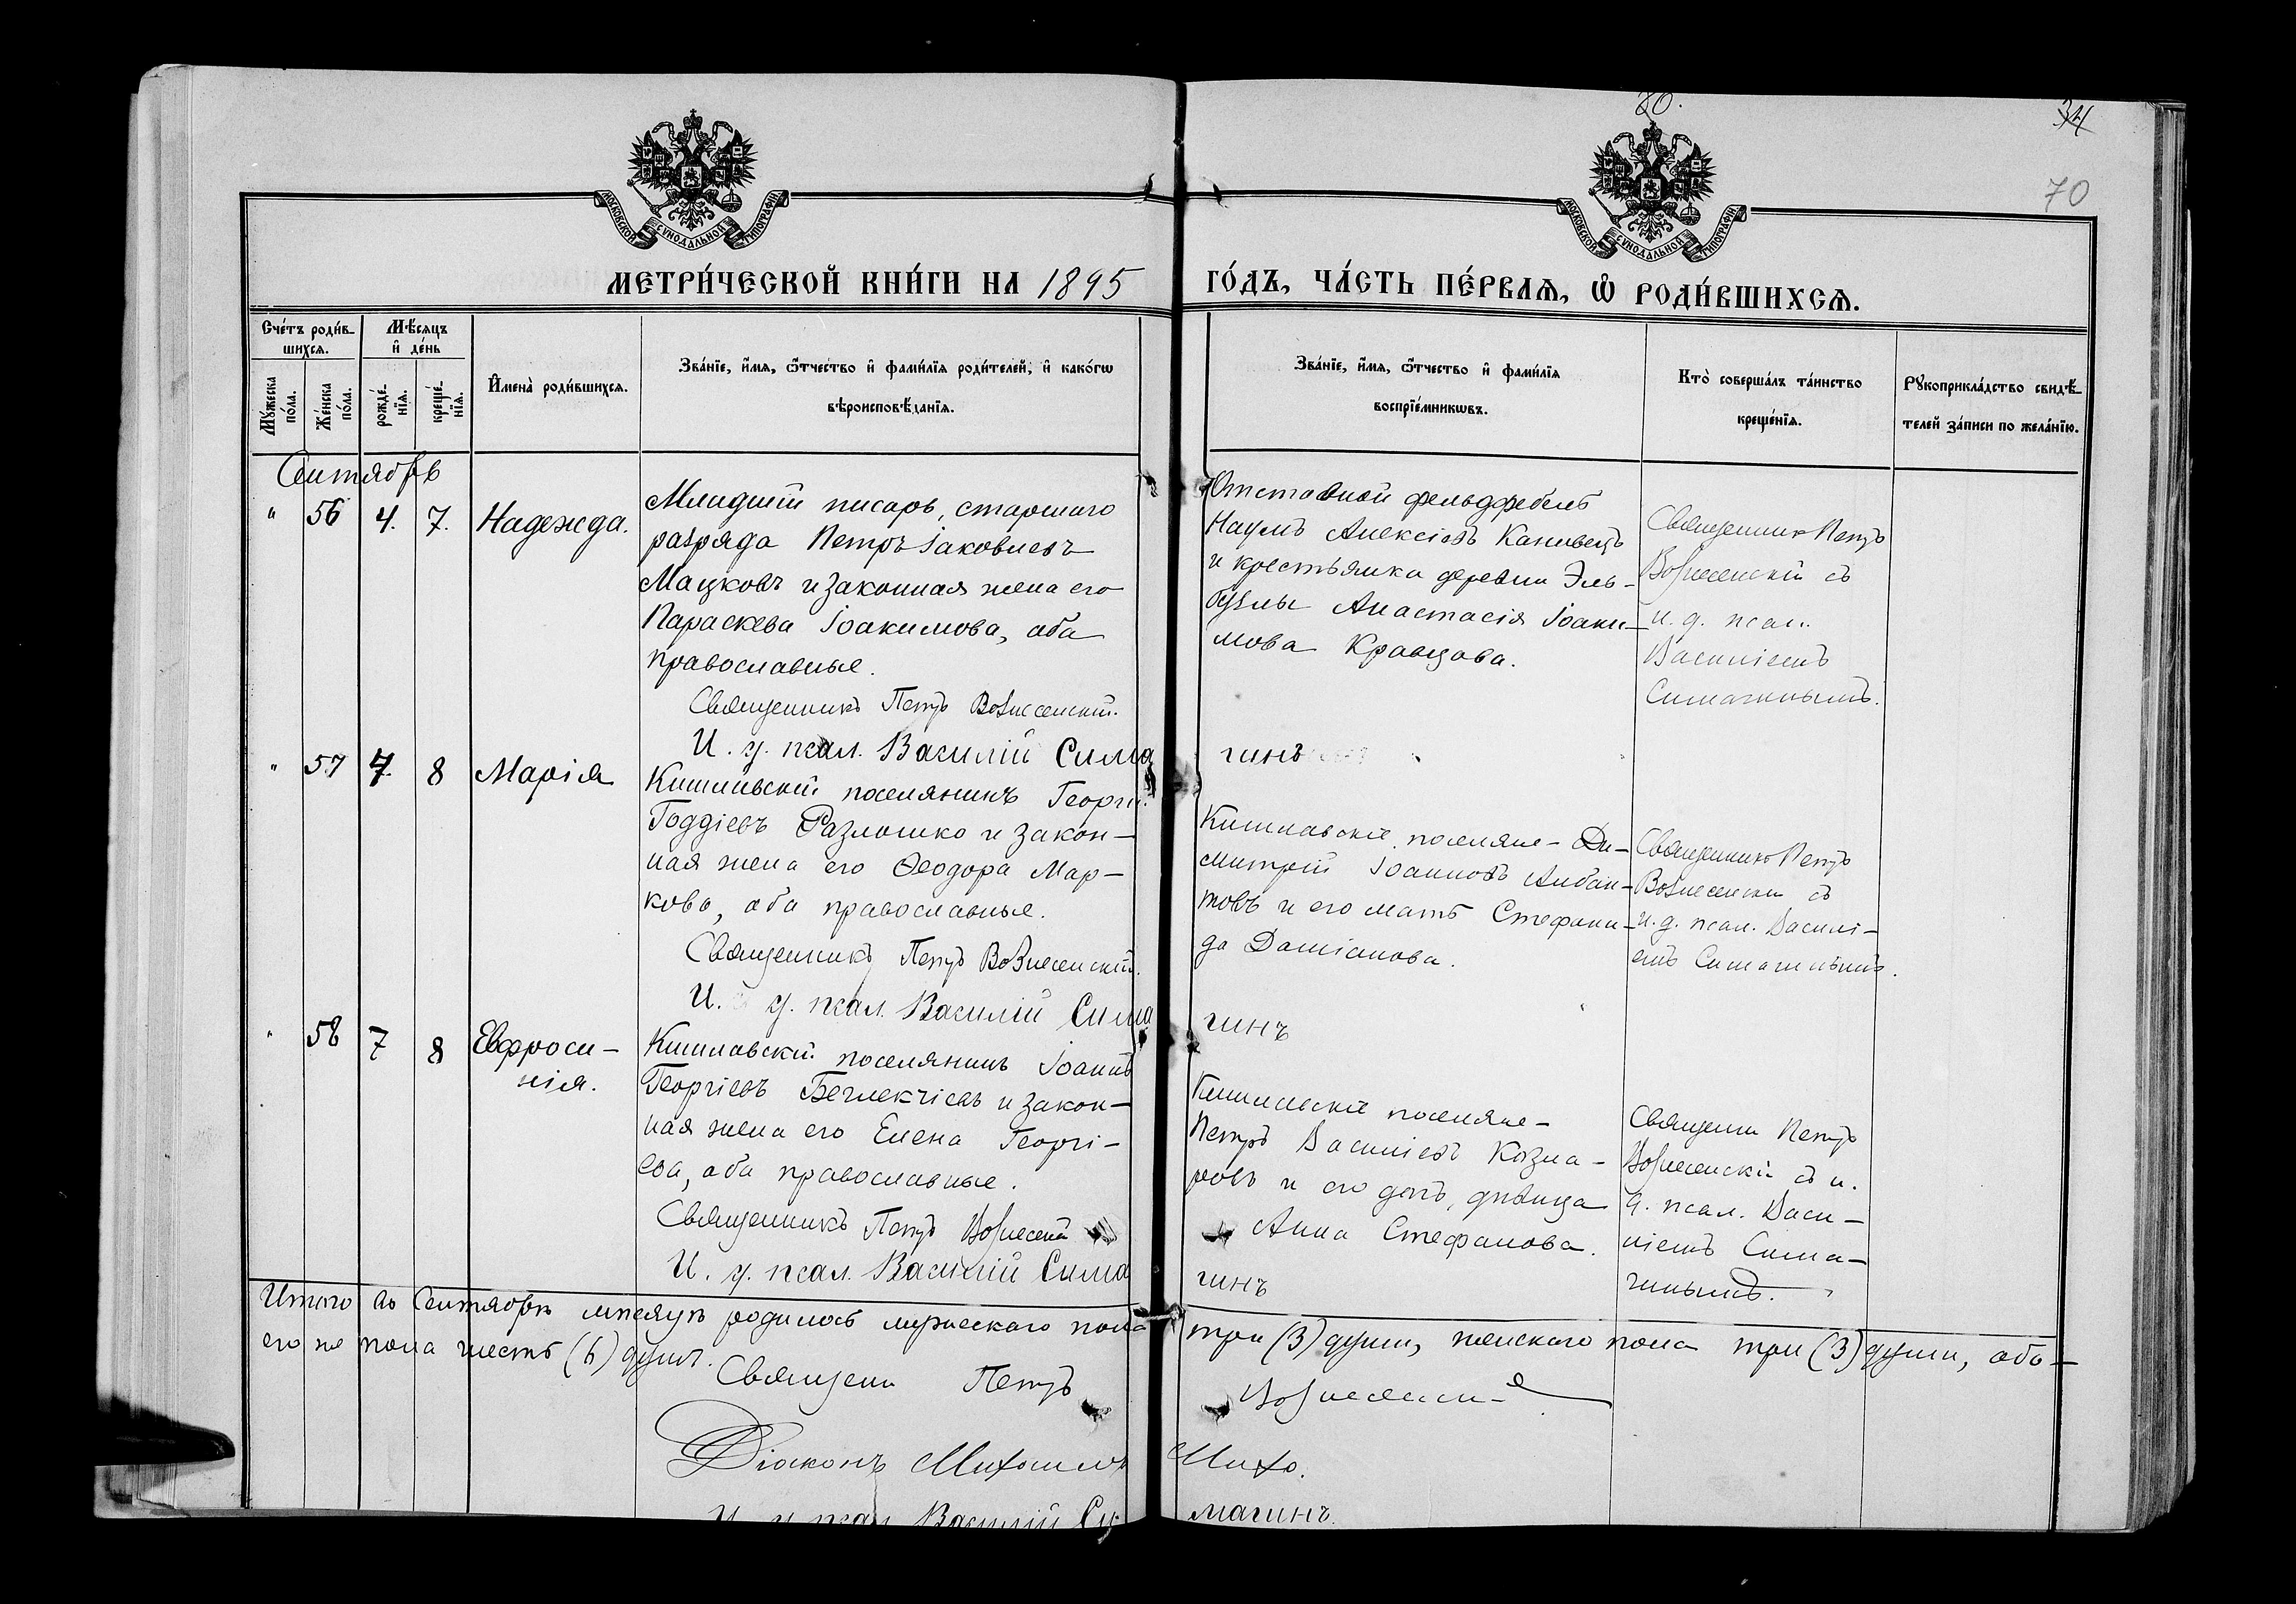 80.
34
70
МОСКОВСКОЙ СУНОДАЛЬНОЙ ТИПОГРАФІИ
МОСКОВСКОЙ СУНОДАЛЬНОЙ ТИПОГРАФІИ
МЕТРИ́ЧЕСКОЙ КНИ́ГИ НА 1895
ГО́ДЪ, ЧА́СТЬ ПЕ́РВАѦ, Ѽ РОДИ́ВШИХСѦ.
Сче́тъ роди́в-
шихсѧ.
Мѣ́сѧцъ
и҆ де́нь
Мꙋ́жеска
по́ла.
Же́нска
по́ла.
рожде́-
нїѧ.
креще́-
нїѧ.
И҆мена̀ роди́вшихсѧ.
Зва́нїе, и҆́мѧ, ѻ҆́тчество и҆ фами́лїѧ роди́телей, и҆ како́гѡ
вѣроисповѣ́данїѧ.
Зва́нїе, и҆́мѧ, ѻ҆́тчество и҆ фами́лїѧ
воспрїе́мникѡвъ.
Кто̀ соверша́лъ та́инство
креще́нїѧ.
Рꙋкоприкла́дство свидѣ́-
телей за́писи по жела́нїю.
Сентябрь
" 56 4. 7. Надежда.
Младшій писарь, старшаго
разряда Петръ Іаковлевъ
Мацковъ и законная жена его
Параскева Іоакимова, оба
православные.
Священникъ Петръ Вознесенскій.
И. д. псал. Василій Сима
гинъ
Отставной фельдфебель
Наумъ Алексіевъ Канивецъ
и крестьянка деревни Эль-
бузлы Анастасія Іоаки-
мова Кравцова.
Священникъ Петръ
Вознесенскій съ
и. д. псал.
Василіемъ
Симагинымъ.
" 57 7. 8 Марія
Кишлавскій поселянинъ Георгій
Годдіевъ Разлошко и закон-
ная жена его Ѳеодора Мар-
кова, оба православные.
Священникъ Петръ Вознесенскій.
И. д. псал. Василій Сима
гинъ
Кишлавскіе поселяне - Ди-
митрій Іоанновъ Албан-
товъ и его мать Стефани-
да Даміанова.
Священникъ Петръ
Вознесенскій съ
и. д. псал. Василі-
емъ Симагинымъ.
" 58 7 8 Евфроси-
нія.
Кишлавскій поселянинъ Іоаннъ
Георгіевъ Беглекчіевъ и закон-
ная жена его Елена Георгі-
ева, оба православные.
Священникъ Петръ
И. д. псал. Василій Сима
гинъ
Кишлавскіе поселяне -
Петръ Василіевъ Козна-
ровъ и его дочь, дѣвица
Анна Стефанова.
Священн Петръ
Вознесенскій съ и.
д. псал. Васи-
ліемъ Сима-
гинымъ.
Итого въ Сентябрѣ мѣсяцѣ родилось мужескаго пола три (3) души, женскаго пола три (3) души, обо-
его же пола шесть (6) душъ.
Священн Петръ Вознесенскій
Діаконъ Михаилъ
И. д. псал. Василій Си
магинъ.